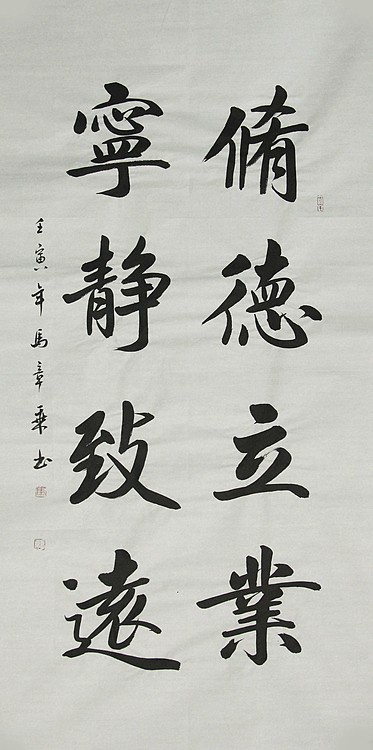 脩德立業
寧靜致遠
壬寅年馬章乘书